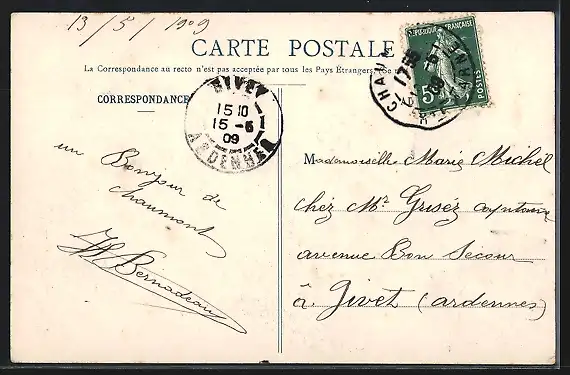 13/5/1909
CARTE POSTALE
La Correspondance au recto n'est pas acceptée par tous les Pays Étrangers. (Se
RÉPUBLIQUE FRANÇAISE
POSTES
5
CHAUM
CORRESPONDANCE
GIVET
15 10
15 -5
09
ARDENNES
un Bonjour de
Chaumont
Bernadeau
Mademoiselle Marie Michel
chez Mr Grisez
avenue Bon Secour
à Givet (ardennes)